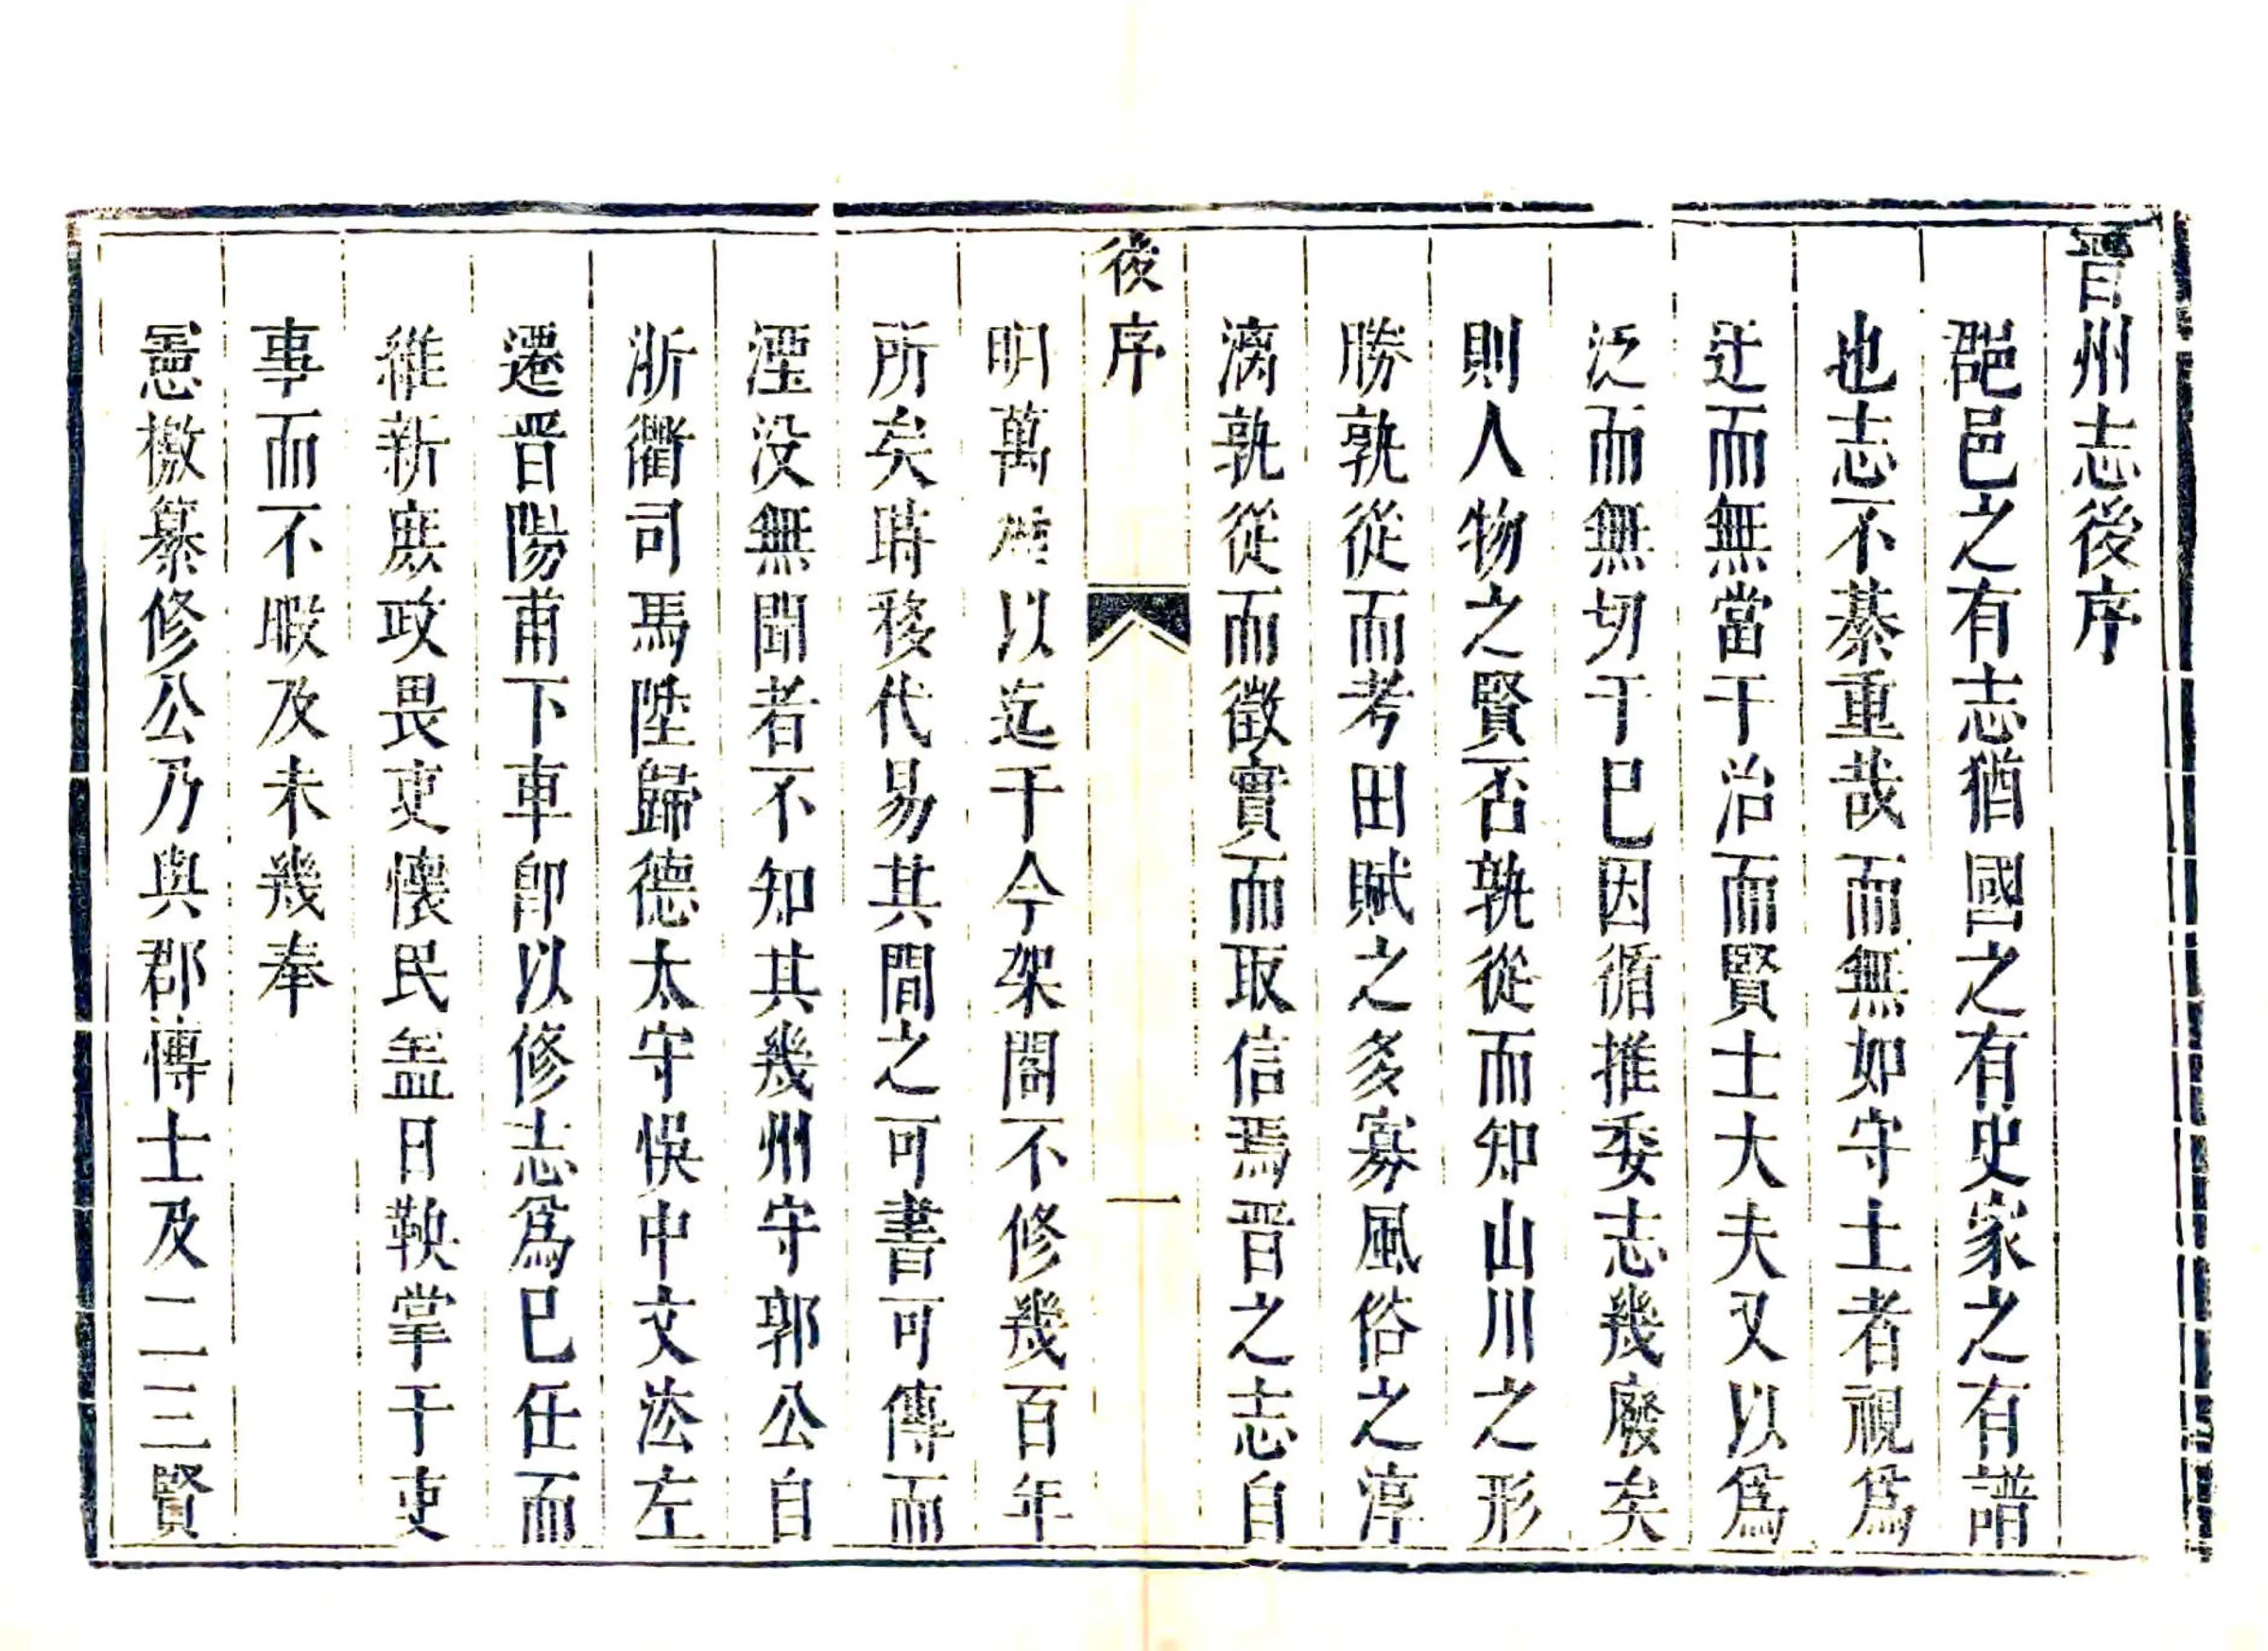 晋州志後序
郡邑之有志猶國之有史家之有譜
也志不綦重哉而無如守土者視爲
迂而無當于治而賢士大夫又以爲
泛而無切于巳因循推委志幾廢矣
則人物之賢否孰從而知山川之形
勝孰從而考田賦之多寡風俗之淳
漓孰從而徵實而取信焉晋之志自
後序
一
明萬以迄于今架閣不修幾百年
所矣時移代易其間之可書可傳而
湮没無聞者不知其幾州守郭公自
浙衢司馬陞歸德太守悞中文法左
遷晋陽甫下車卽以修志爲巳任而
維新庶政畏吏懷民盖日鞅掌于吏
事而不暇及未幾奉
憲檄纂修公乃與郡博士及二三賢